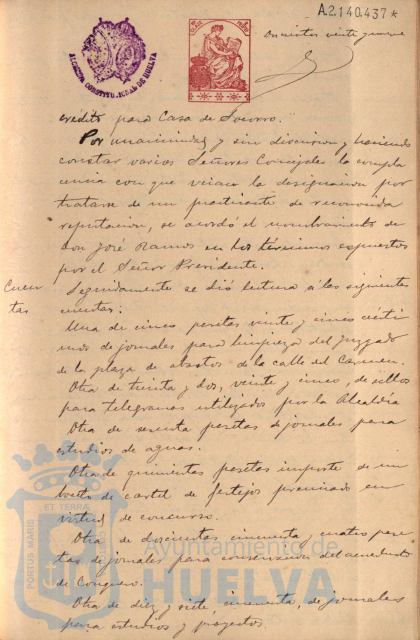 A.2140.437*
Doscientos veinte y nueve
ALCALDIA CONSTITUCIONAL DE HUELVA
crédito para Casa de Socorro.
Por unanimidad y sin discusion y haciendo
constar varios Señores Concejales la compla
cencia con que veian la designacion por
tratarse de un practicante de reconocida
reputacion, se acordó el nombramiento de
Don José Ramos en los términos expuestos
por el Señor Presidente.
Cuen
tas
Seguidamente se dió lectura á las siguientes
cuentas:
Una de cinco pesetas veinte y cinco cénti
mos de jornales para limpieza del Juzgado
de la plaza de abastos de la calle del Carmen.
Otra de treinta y dos, veinte y cinco, de sellos
para telegramas utilizados por la Alcaldía
Otra de sesenta pesetas de jornales para
estudios de aguas.
Otra de quinientas pesetas importe de un
boceto de cartel de festejos premiado en
virtud de concurso.
Otra de doscientas cincuenta y cuatro pese
tas de jornales para conservacion del acueducto
de Conquero.
Otra de diez y siete, cincuenta, de jornales
para estudios y proyectos.
PORTUS MARIS ET TERRAE
Ayuntamiento de
HUELVA